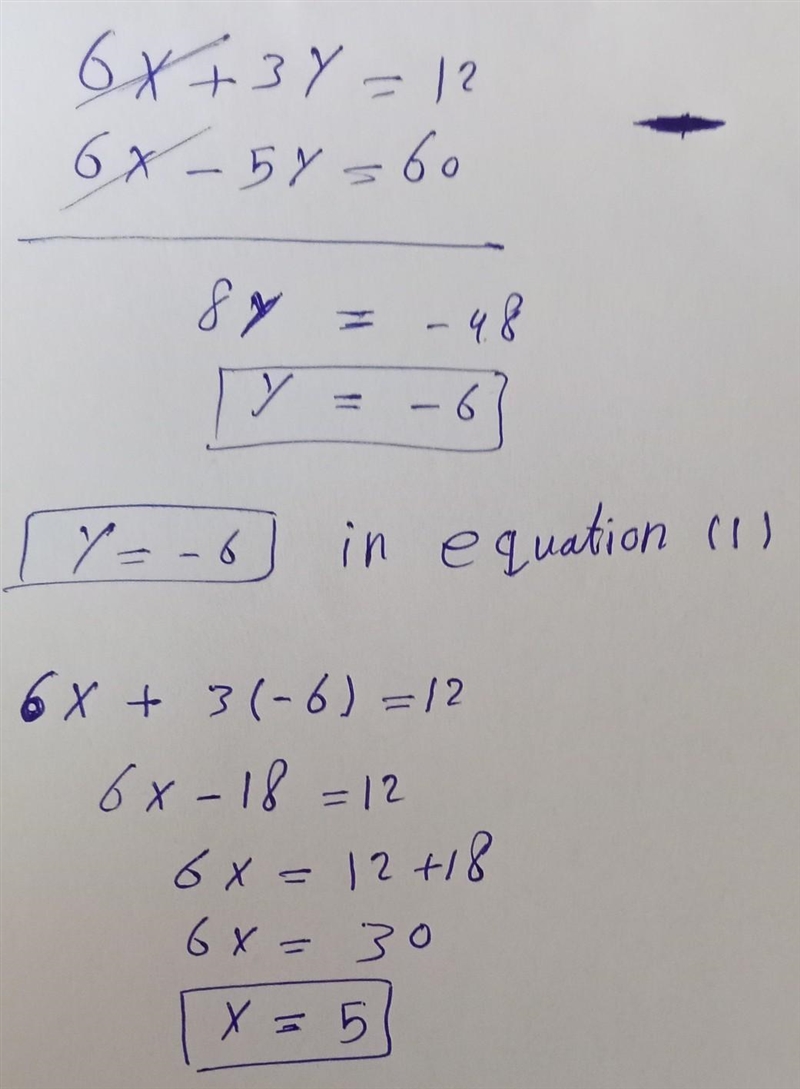 6X + 3Y = 12
6X - 5Y = 60
8Y = -48
Y = -6
Y = -6 in equation (1)
6X + 3(-6) = 12
6X - 18 = 12
6X = 12 + 18
6X = 30
X = 5